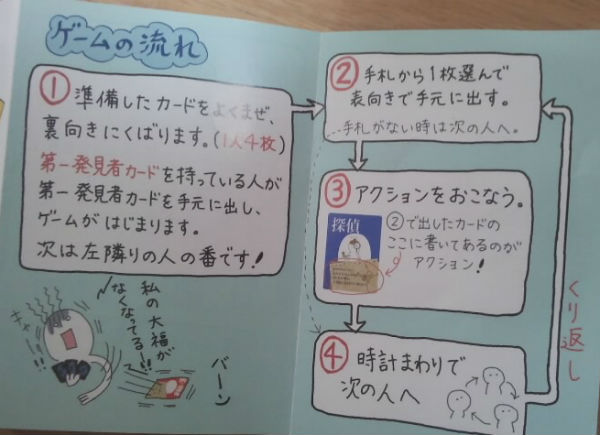 ゲームの流れ
① 準備したカードをよくまぜ、
裏向きにくばります。(1人4枚)
第一発見者カードを持っている人が
第一発見者カードを手元に出し、
ゲームがはじまります。
次は左隣りの人の番です!
キャー!!
私の大福が
なくなってる…!!
バーン
② 手札から1枚選んで
表向きで手元に出す。
手札がない時は次の人へ。
③ アクションをおこなう。
探偵
②で出したカードの
ここに書いてあるのが
アクション!
④ 時計まわりで
次の人へ
くり返し